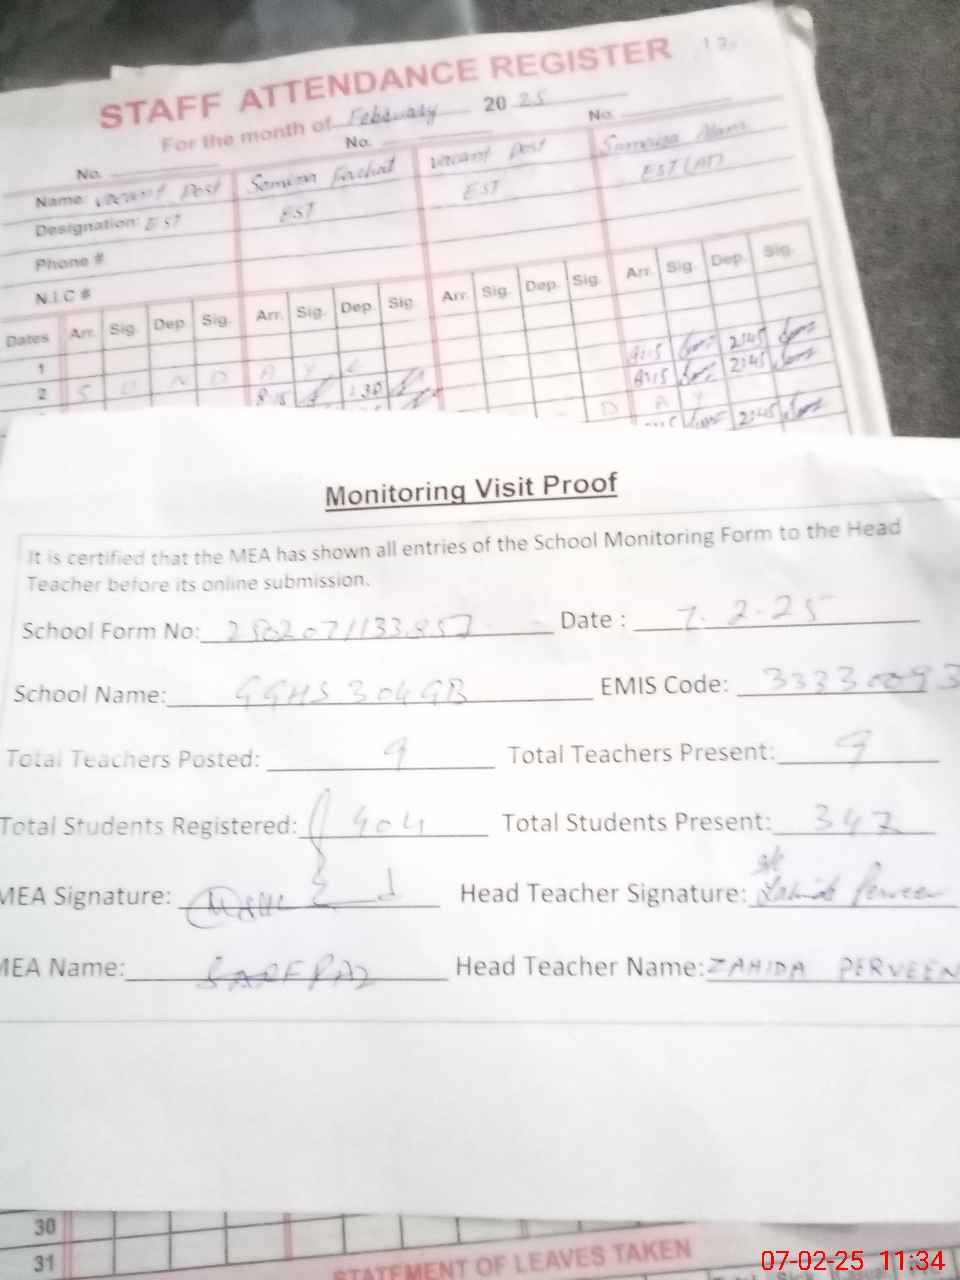 STAFF ATTENDANCE REGISTER
For the month of February 2025
No. No. No.
Name: vacant Post Samina vacant Post Samaina Alam
Designation: EST EST EST EST (AT)
Phone #
N.I.C #
Dates Arr. Sig. Dep. Sig. Arr. Sig. Dep. Sig. Arr. Sig. Dep. Sig. Arr. Sig. Dep. Sig.
1 2:45
2 S U N D A Y 2:45
8:15 1:30 D A Y
2:45
Monitoring Visit Proof
It is certified that the MEA has shown all entries of the School Monitoring Form to the Head
Teacher before its online submission.
School Form No: Date : 7.2.25
School Name: GGHS 304GB EMIS Code: 33330093
Total Teachers Posted: 9 Total Teachers Present: 9
Total Students Registered: 404 Total Students Present: 347
MEA Signature: Head Teacher Signature: Zahida Perveen
MEA Name: SARFRAZ Head Teacher Name: ZAHIDA PERVEEN
30
31
STATEMENT OF LEAVES TAKEN
07-02-25 11:34